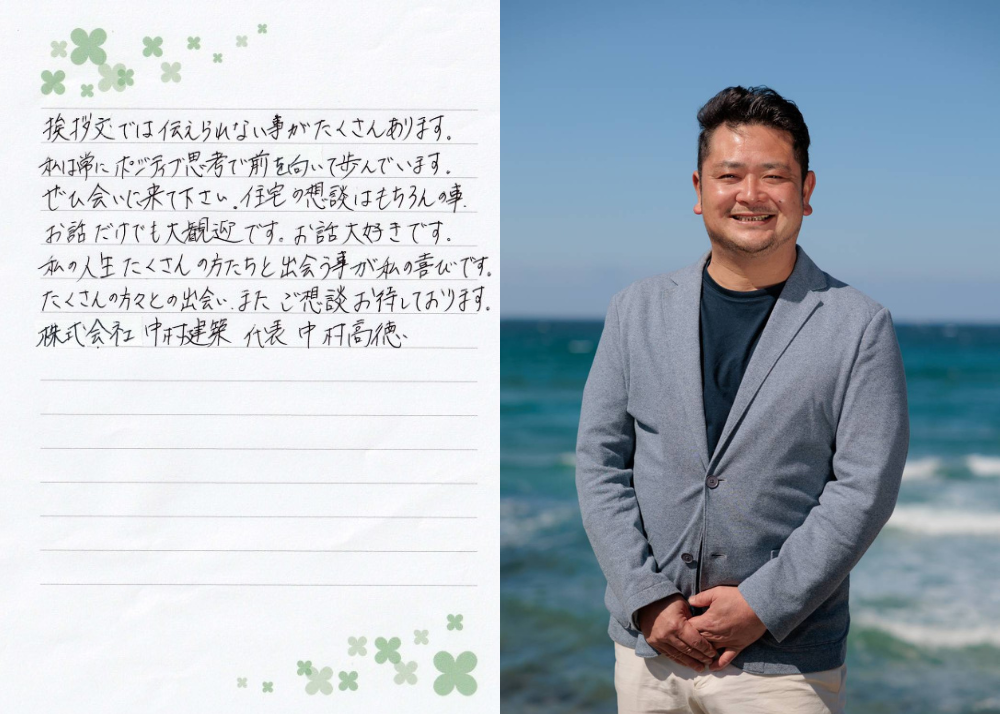 挨拶文では伝えられない事がたくさんあります。
私は常にポジティブ思考で前を向いて歩んでいます。
ぜひ会いに来て下さい。住宅の想談はもちろんの事、
お話だけでも大観迎です。お話大好きです。
私の人生たくさんの方たちと出会う事が私の喜びです。
たくさんの方々との出会い、またご想談お待しております。
株式会社 中村建築 代表 中村高徳